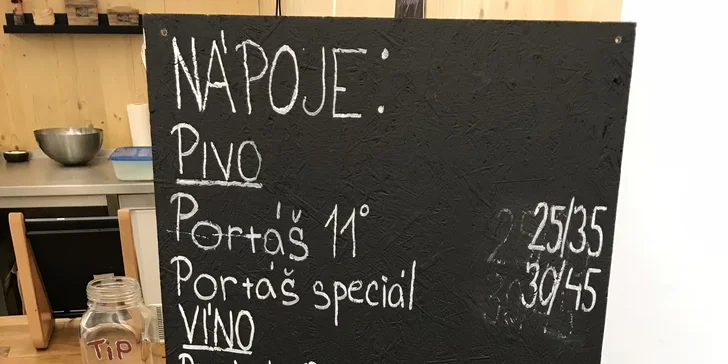 NÁPOJE:
PIVO
Portáš 11° 25/35
Portáš speciál 30/45
VÍNO
TIP